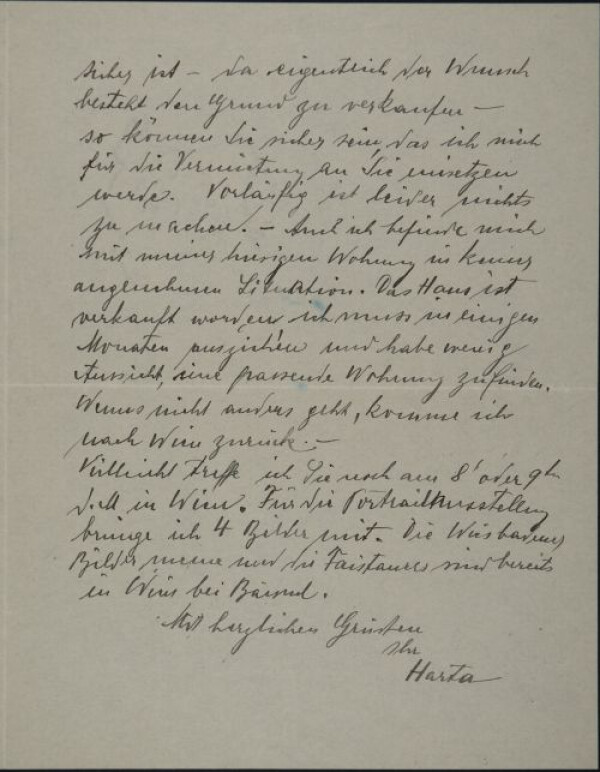 sicher ist – da eigentlich der Wunsch
besteht den Grund zu verkaufen –
so können Sie sicher sein, das ich mich
für die Vermietung an Sie einsetzen
werde. Vorläufig ist leider nichts
zu machen. – Auch ich befinde mich
mit meiner hiesigen Wohnung in keiner
angenehmen Situation. Das Haus ist
verkauft worden ich muss in einigen
Monaten ausziehen und habe wenig
Aussicht, eine passende Wohnung zu finden.
Wenns nicht anders geht, komme ich
nach Wien zurück. –
Vielleicht treffe ich Sie noch am 8' oder 9ten
d.M in Wien. Für die Portraitausstellung
bringe ich 4 Bilder mit. Die Wiesbadener
Bilder meine und die Faistauers sind bereits
in Wien bei
Mit herzlichen Grüssen
Ihr
Harta